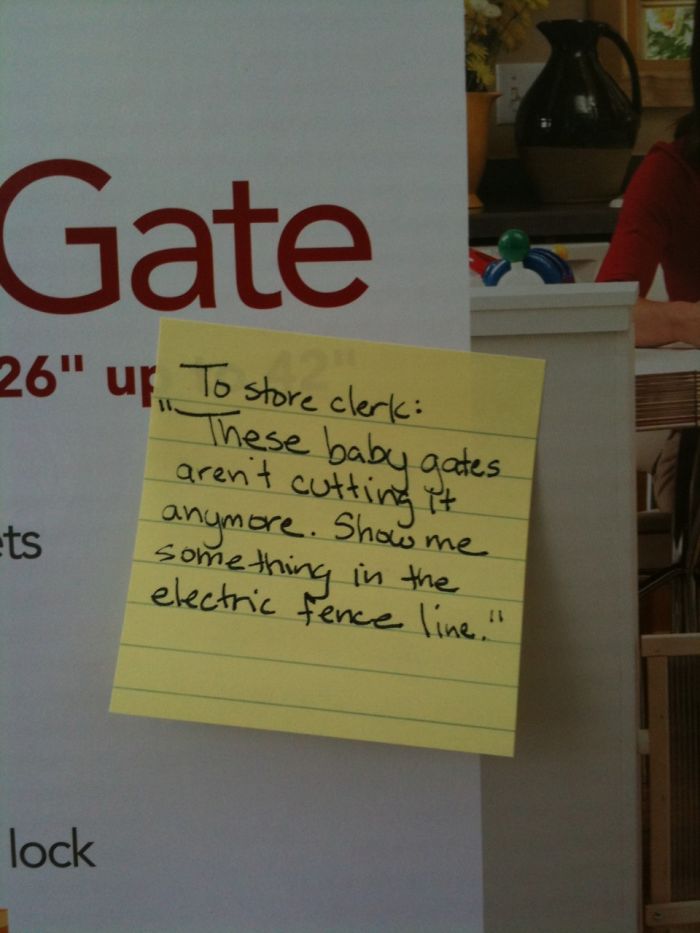 Gate
26" up to 42"
To store clerk:
"These baby gates
aren't cutting it
anymore. Show me
something in the
electric fence line."
ets
lock